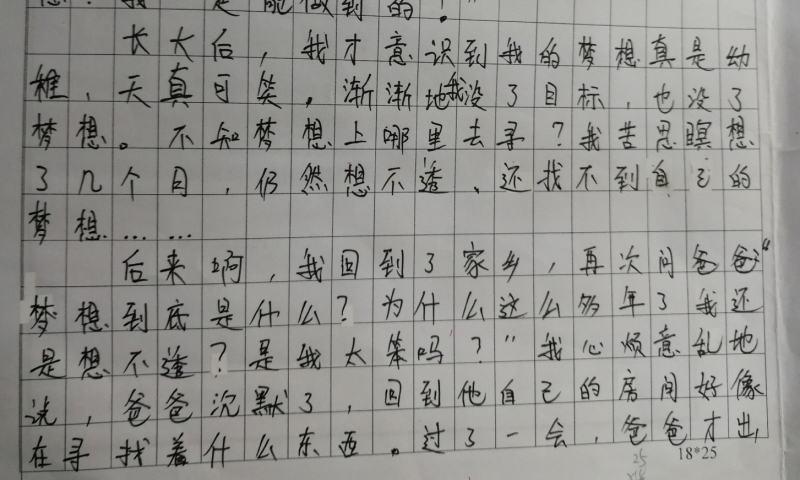 是能做到的！"
长大后，我才意识到我的梦想真是幼
稚，天真可笑。渐渐地我没了目标，也没了
梦想。不知梦想上哪里去寻？我苦思瞑想
了几个月，仍然想不透、还找不到自己的
梦想……
后来啊，我回到了家乡，再次问爸爸"
梦想到底是什么？为什么这么多年了我还
是想不透？是我太笨吗？"我心烦意乱地
说，爸爸沉默了，回到他自己的房间好像
在寻找着什么东西。过了一会，爸爸才出
18*25
25